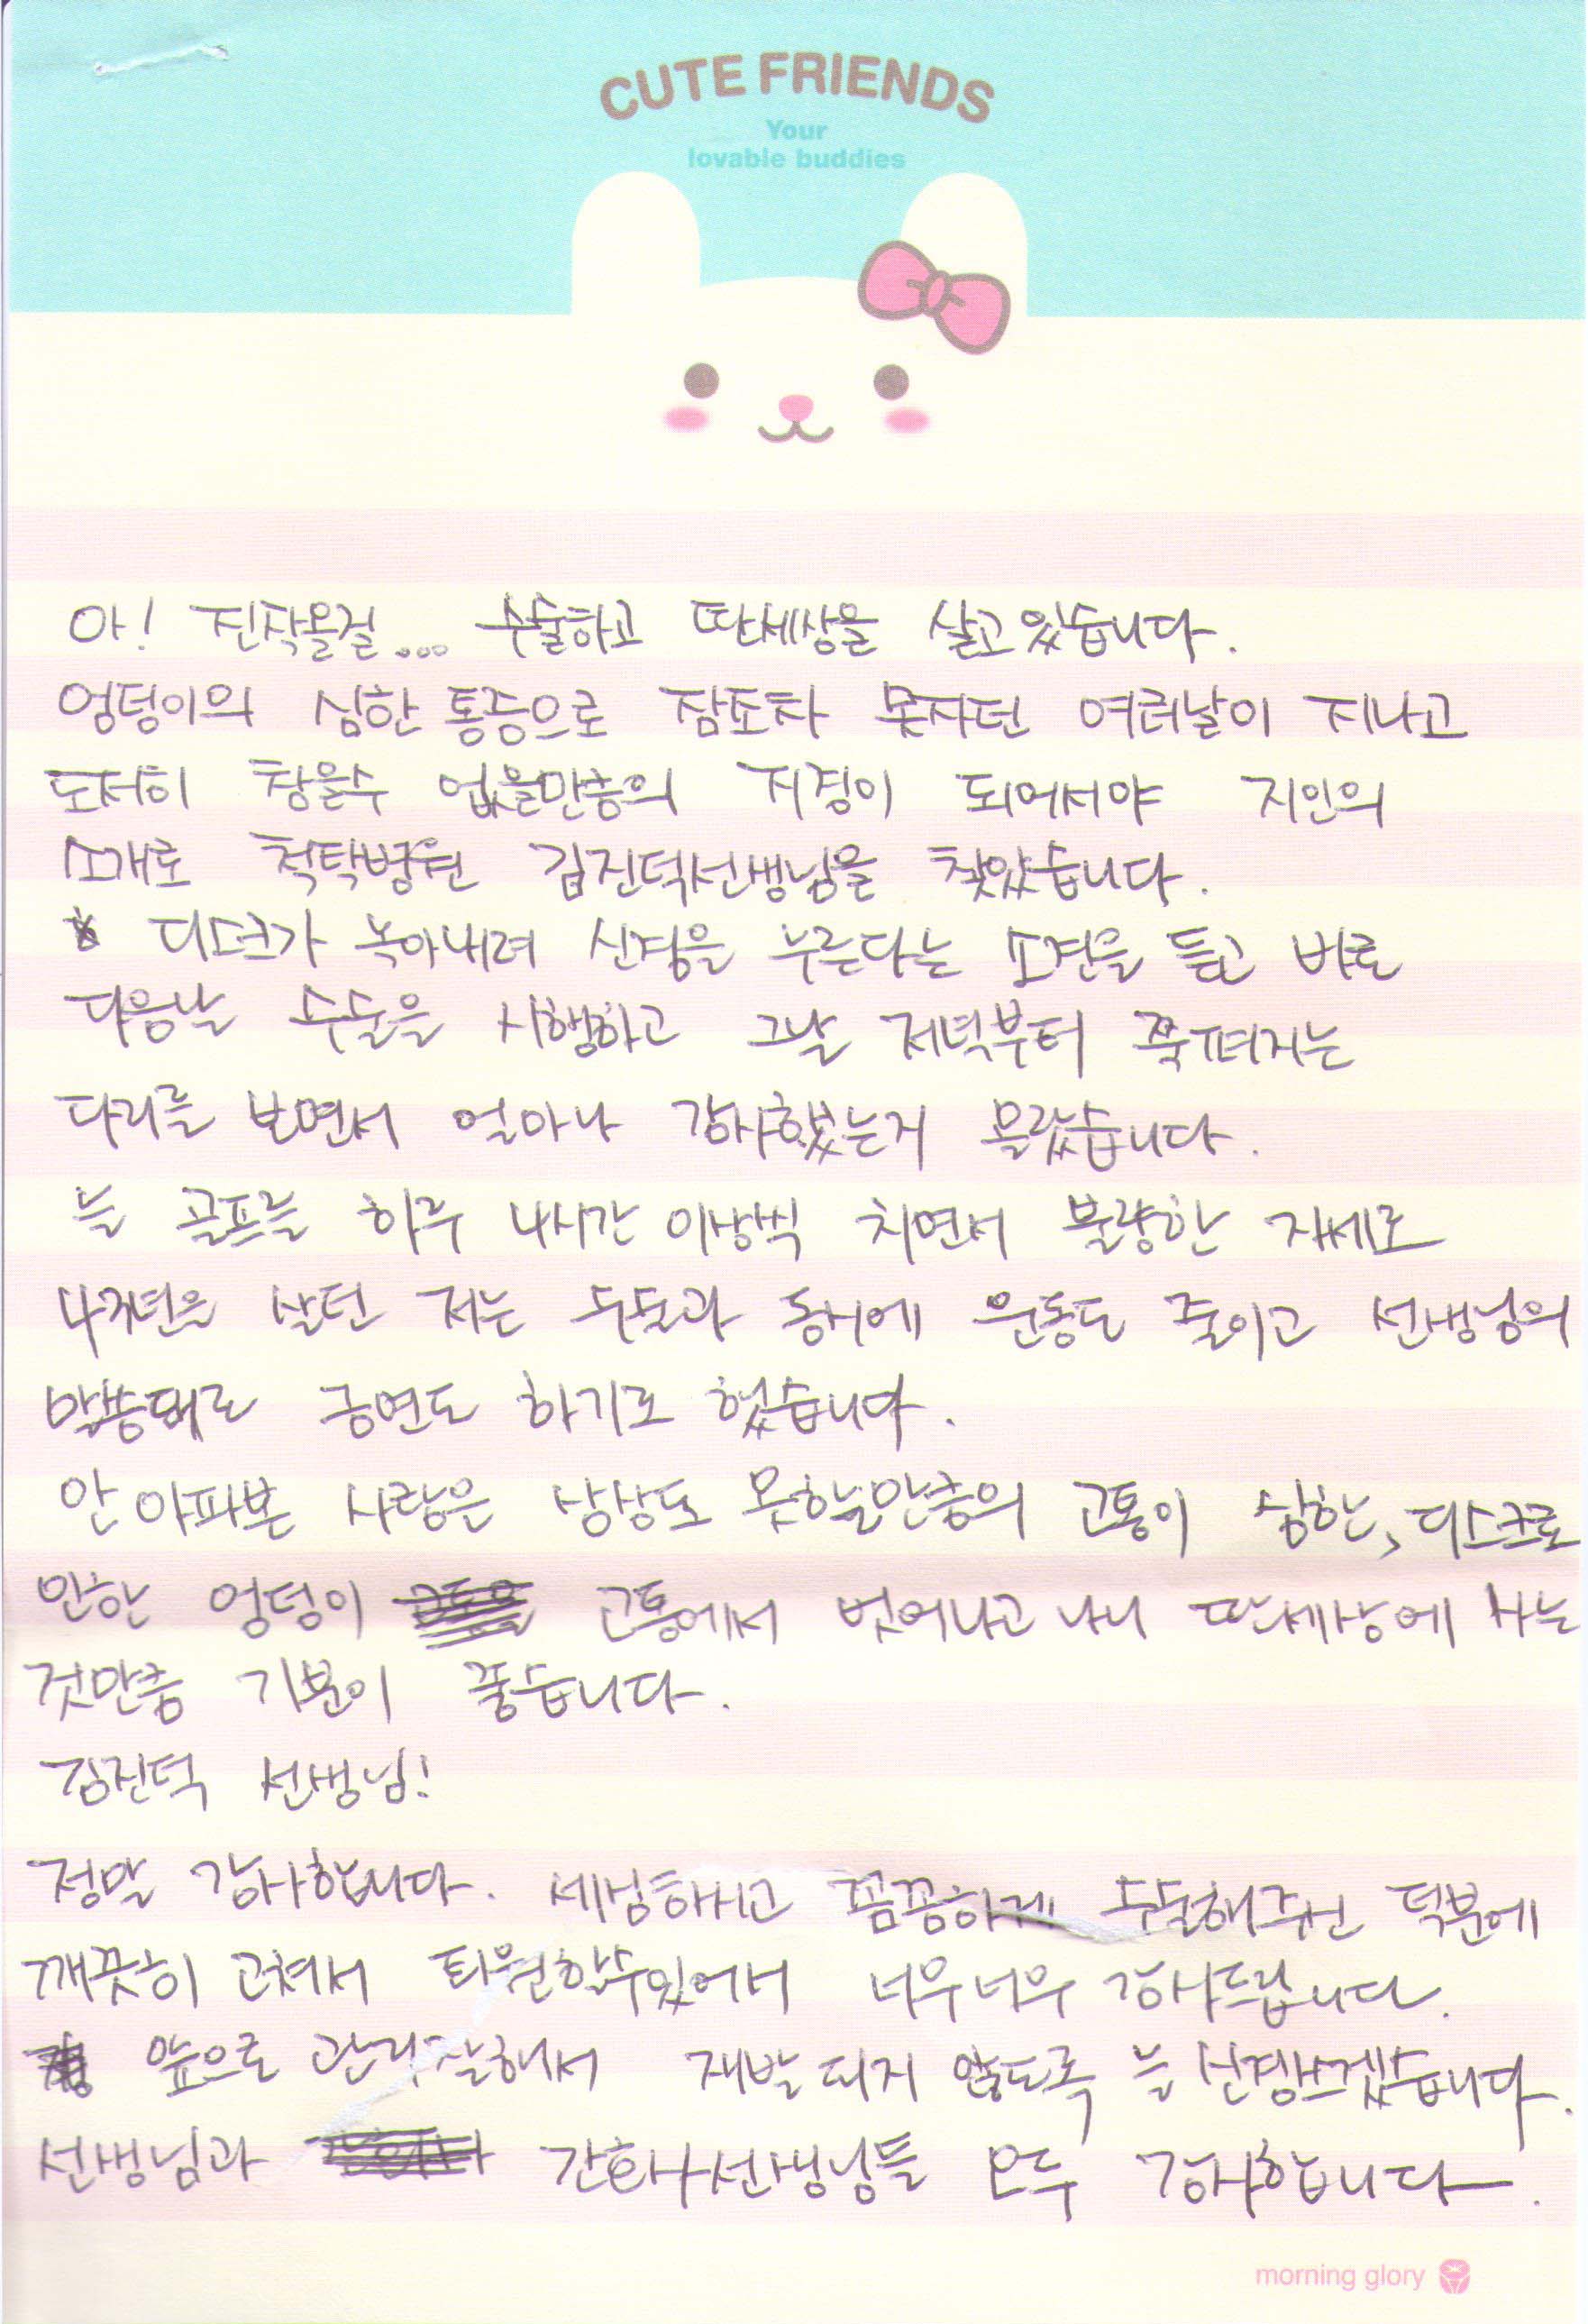 CUTE FRIENDS
Your
lovable buddies
아! 진작올걸... 수술하고 딴세상을 살고있습니다.
엉덩이의 심한 통증으로 잠조차 못자던 여러날이 지나고
도저히 참을수 없을만큼의 지경이 되어서야 지인의
소개로 척탁병원 김진덕선생님을 찾았습니다.
디스크가 녹아내려 신경을 누른다는 소견을 듣고 바로
다음날 수술을 시행하고 그날 저녁부터 쭉펴지는
다리를 보면서 얼마나 감사했는지 몰랐습니다.
늘 골프를 하루 4시간 이상씩 치면서 불량한 자세로
4개년을 살던 저는 수술과 동시에 운동도 줄이고 선생님의
말씀대로 금연도 하기로 했습니다.
안 아파본 사람은 상상도 못하늘만큼의 고통이 심한, 디스크로
인한 엉덩이 고통에서 벗어나고 나니 딴세상에 사는
것만큼 기분이 좋습니다.
김진덕 선생님!
정말 감사합니다. 세심하시고 꼼꼼하게 수술해주신 덕분에
깨끗히 고쳐서 퇴원할수있어서 너무너무 감사드립니다.
앞으로 관리잘해서 재발되지 않도록 늘 신경쓰겠습니다.
선생님과 간호사선생님들 모두 감사합니다.
morning glory